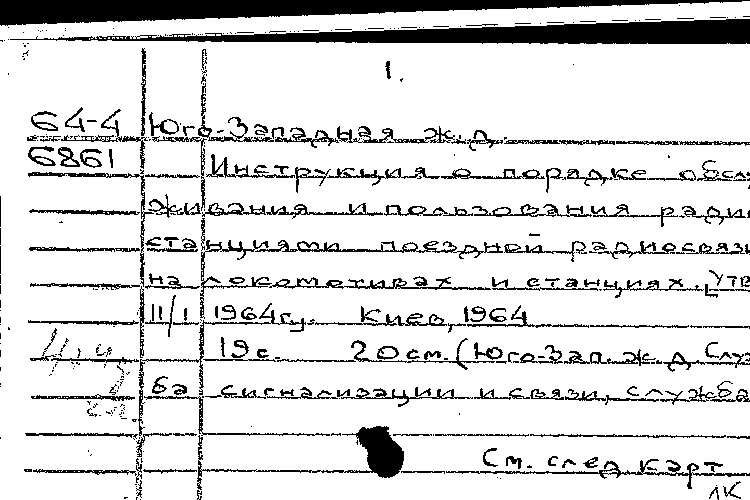 1.
64-4 Юго-Западная ж.д.
6861 Инструкция о порядке обслу
живания и пользования ради
станциями поездной радиосвязи
на локомотивах и станциях. [Утв
11/I 1964г. Киев, 1964
19с. 20см. (Юго-Зап. ж.д. Служ
ба сигнализации и связи, служба
См. след. карт